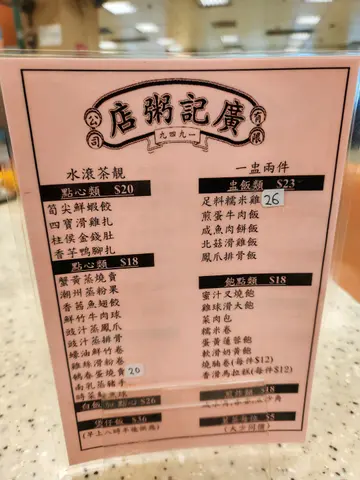 廣記粥店
有限
公司
一九四九
水滾茶靚
點心類 $20
筍尖鮮蝦餃
四寶滑雞扎
柱侯金錢肚
香芋鴨腳扎
點心類 $18
蟹黃蒸燒賣
潮州蒸粉果
香茜魚翅餃
鮮竹牛肉球
豉汁蒸鳳爪
豉汁蒸排骨
蠔油鮮竹卷
雞絲滑粉卷
鵪春蛋燒賣 20
南乳蒸豬手
時菜鯪魚球
白飯加點心 $26
$36
(早上八時半後供應)
一盅兩件
盅飯類 $23
足料糯米雞 26
煎蛋牛肉飯
咸魚肉餅飯
北菇滑雞飯
鳳爪排骨飯
飽點類 $18
蜜汁叉燒飽
雞球滑大飽
菜肉包
糯米卷
蛋黃蓮蓉飽
軟滑奶黃飽
燒腩卷(每件$12)
香滑馬拉糕(每件$12)
$18
$5
(大小同價)